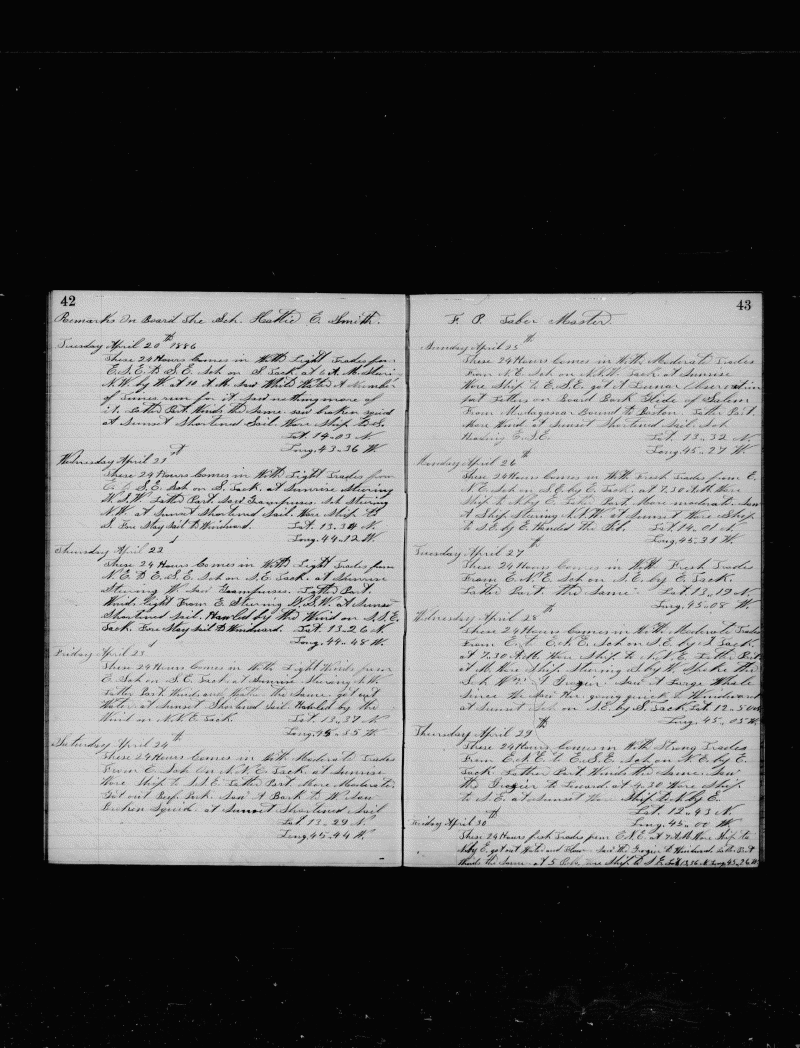 42
Remarks On Board The Sch. Hattie E. Smith.
Tuesday April 20th 1886
These 24 Hours Comes in With Light Trades from
E.S.E. To S.E. Sch on S. Tack. at 6 A.M. Steering
N.W. by W. at 10 A.M. Saw White Water A Number
of times run for it. Saw nothing more of
it. Latter Part Winds the Same saw broken squid
at Sunset Shortened Sail. Wore Ship to S.
Lat. 14-03 N
Long. 43-36 W.
Wednesday April 21st
These 24 Hours Comes in With Light Trades from
S.E. Sch on S. Tack. at Sunrise Steering
W.S.W. Latter Part Saw Grampuses. Sch Steering
N.W. at Sunset Shortened Sail. Wore Ship to
S. Fore Stay Sail To Windward. Lat. 13-34 N
Long. 44-12 W
Thursday April 22
These 24 Hours Comes in With Light Trades from
N.E. To E.S.E. Sch on N.E. Tack. at Sunrise
Steering W. Saw Grampuses. Latter Part
Winds light From E. Steering W.S.W. at Sunset
Shortened Sail. Hawled by the Wind on S.S.E.
Tack. Fore Stay Sail To Windward. Lat. 13-26 N.
Long. 44-48 W.
Friday April 23
These 24 Hours Comes in With Light Winds from
E. Sch on S.E. Tack at Sunrise Steering N.W.
Latter Part Winds and Weather the Same. got out
Water at Sunset Shortened Sail. Hawled by the
Wind on N.N.E. Tack Lat. 13-37 N
Long. 45-35 W.
Saturday April 24th
These 24 Hours Comes in With Moderate Trades
From E. Sch On N.N.E. Tack. at Sunrise
Wore Ship to S.S.E. Latter Part More Moderate.
Got out Beef. Pork. Saw A Bark to W. Saw
Broken Squid. at Sunset Shortened Sail
Lat. 13-29 N
Long. 45-44 W.
43
F. P. Taber Master.
Sunday April 25th
These 24 Hours Comes in With Moderate Trades
From N.E. Sch on N.N.W. Tack at Sunrise
Wore Ship to E.S.E. got A Lunar Observation
put Letters on Board Bark Glide of Salem
From Madagascar Bound to Boston. Latter Part
More Wind at Sunset Shortened Sail. Sch
Heading E.S.E. Lat. 13-32 N
Long. 45-27 W.
Monday April 26th
These 24 Hours Comes in With Fresh Trades from E.
N.E. Sch on S.E. by E. Tack. at 7.30 A.M. Wore
Ship to N. by E. Latter Part More moderate. Saw
A Ship Steering N.N.W. at Sunset Wore Ship
to S.E. by E. Handed the Jib. Lat. 14-01 N
Long. 45-31 W.
Tuesday April 27th
These 24 Hours Comes in With Fresh Trades
From E.N.E. Sch on S.E. by E. Tack.
Latter Part the Same. Lat. 13-19 N
Long. 45-08 W.
Wednesday April 28th
These 24 Hours Comes in With Moderate Trades
From E. to E.N.E. Sch on S.E. by S. Tack.
at 7.30 A.M. Wore Ship to N.N.E. Latter Part
at M. Wore Ship Steering S. by W. Spoke the
Sch Wm. A. Grozier. Saw A Large Whale
Since We Saw Her. going quick to Windward
at Sunset Sch on S.E. by S. Tack Lat. 12-50 N
Long. 45-05 W.
Thursday April 29th
These 24 Hours Comes in With Strong Trades
From E.N.E. to E.S.E. Sch on N.E. by E.
Tack. Latter Part Winds the Same. Saw
the Grozier to Leward. at 4.30 Wore Ship
to S.E. at Sunset Wore Ship to N. by E.
Lat. 12-43 N.
Long. 45-00 W.
Friday April 30th
These 24 Hours fresh Trades from E.N.E. at 7 A.M. Wore Ship to
N. by E. got out Water and Flour. Saw the Grozier to Windward. Latter Part
Winds the Same. at 5 Wore Ship to S.E. Lat. 13-36 N. Long. 45-26 W.